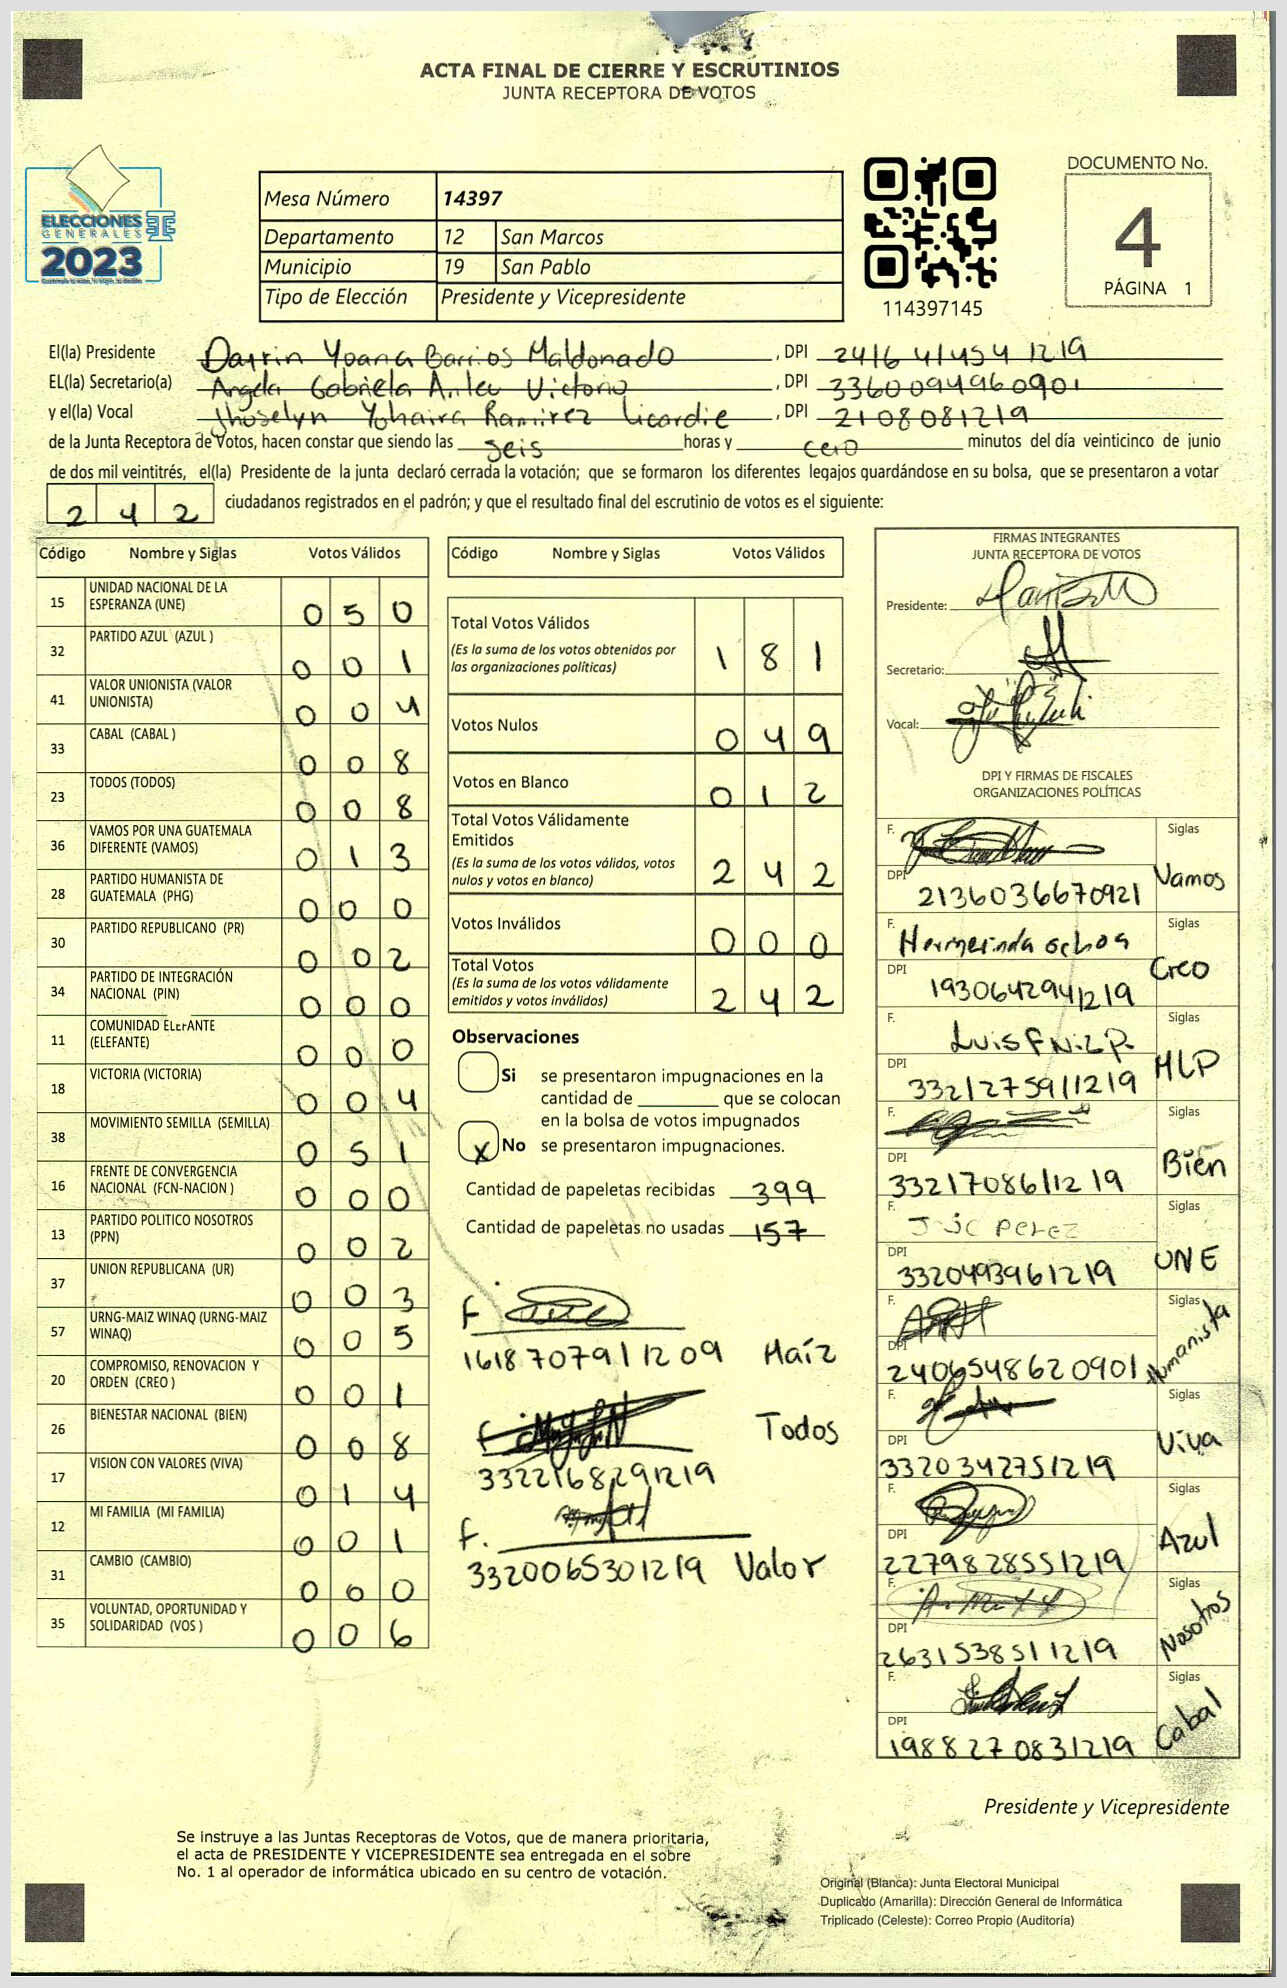 ACTA FINAL DE CIERRE Y ESCRUTINIOS
JUNTA RECEPTORA DE VOTOS
ELECCIONES
GENERALES
2023
Mesa Número 14397
Departamento 12 San Marcos
Municipio 19 San Pablo
Tipo de Elección Presidente y Vicepresidente
114397145
DOCUMENTO No.
4
PÁGINA 1
El(la) Presidente Dayrin Yoana Barrios Maldonado , DPI 2416 41454 1219
EL(la) Secretario(a) Angela Gabriela Victorio , DPI 3360094960901
y el(la) Vocal Jhoselyn Yohaira Ramirez Licardie , DPI 2108081219
de la Junta Receptora de Votos, hacen constar que siendo las seis horas y cero minutos del día veinticinco de junio
de dos mil veintitrés, el(la) Presidente de la junta declaró cerrada la votación; que se formaron los diferentes legajos guardándose en su bolsa, que se presentaron a votar
242 ciudadanos registrados en el padrón; y que el resultado final del escrutinio de votos es el siguiente:
Código Nombre y Siglas Votos Válidos
15 UNIDAD NACIONAL DE LA ESPERANZA (UNE) 050
32 PARTIDO AZUL (AZUL ) 001
41 VALOR UNIONISTA (VALOR UNIONISTA) 004
33 CABAL (CABAL ) 008
23 TODOS (TODOS) 008
36 VAMOS POR UNA GUATEMALA DIFERENTE (VAMOS) 013
28 PARTIDO HUMANISTA DE GUATEMALA (PHG) 000
30 PARTIDO REPUBLICANO (PR) 002
34 PARTIDO DE INTEGRACIÓN NACIONAL (PIN) 000
11 COMUNIDAD ELEFANTE (ELEFANTE) 000
18 VICTORIA (VICTORIA) 004
38 MOVIMIENTO SEMILLA (SEMILLA) 051
16 FRENTE DE CONVERGENCIA NACIONAL (FCN-NACION ) 000
13 PARTIDO POLITICO NOSOTROS (PPN) 002
37 UNION REPUBLICANA (UR) 003
57 URNG-MAIZ WINAQ (URNG-MAIZ WINAQ) 005
20 COMPROMISO, RENOVACION Y ORDEN (CREO ) 001
26 BIENESTAR NACIONAL (BIEN) 008
17 VISION CON VALORES (VIVA) 014
12 MI FAMILIA (MI FAMILIA) 001
31 CAMBIO (CAMBIO) 000
35 VOLUNTAD, OPORTUNIDAD Y SOLIDARIDAD (VOS ) 006
Código Nombre y Siglas Votos Válidos
Total Votos Válidos 181
(Es la suma de los votos obtenidos por
las organizaciones políticas)
Votos Nulos 049
Votos en Blanco 012
Total Votos Válidamente
Emitidos 242
(Es la suma de los votos válidos, votos
nulos y votos en blanco)
Votos Inválidos 000
Total Votos 242
(Es la suma de los votos válidamente
emitidos y votos inválidos)
Observaciones
Si se presentaron impugnaciones en la
cantidad de ________ que se colocan
en la bolsa de votos impugnados
X No se presentaron impugnaciones.
Cantidad de papeletas recibidas 399
Cantidad de papeletas no usadas 157
F
1618707911209 Maíz
F Todos
3322168291219
F.
3320065301219 Valor
FIRMAS INTEGRANTES
JUNTA RECEPTORA DE VOTOS
Presidente:
Secretario:
Vocal:
DPI Y FIRMAS DE FISCALES
ORGANIZACIONES POLÍTICAS
F. Siglas
DPI 2136036670921 Vamos
F. Hermerinda ochoa Siglas
DPI 1930642941219 Creo
F. Luis F Siglas
DPI 3321275911219 MLP
F. Siglas
DPI 3321708611219 Bien
F. Perez Siglas
DPI 3320493961219 UNE
F. Siglas
DPI 2406548620901 Humanista
F. Siglas
DPI 3320342751219 Viva
F. Siglas
DPI 2279828551219 Azul
F. Siglas
DPI 2631538511219 Nosotros
F. Siglas
DPI 1988270831219 Cabal
Presidente y Vicepresidente
Se instruye a las Juntas Receptoras de Votos, que de manera prioritaria,
el acta de PRESIDENTE Y VICEPRESIDENTE sea entregada en el sobre
No. 1 al operador de informática ubicado en su centro de votación.
Original (Blanca): Junta Electoral Municipal
Duplicado (Amarilla): Dirección General de Informática
Triplicado (Celeste): Correo Propio (Auditoría)